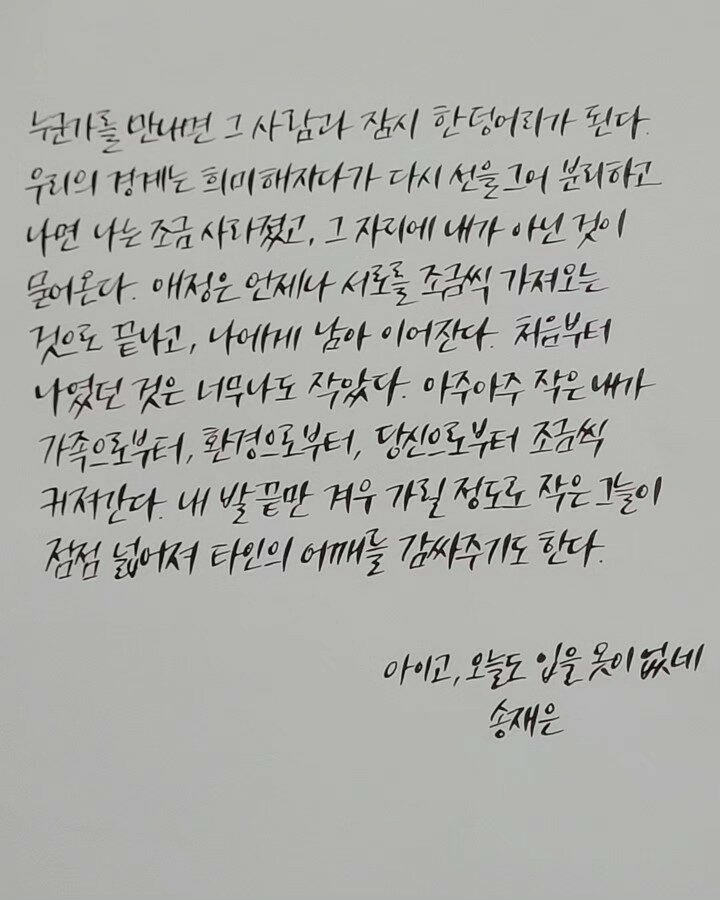 누군가를 만나면 그 사람과 잠시 한덩어리가 된다.
우리의 경계는 희미해지다가 다시 선을 그어 분리하고
나면 나는 조금 사라졌고, 그 자리에 내가 아닌 것이
묻어온다. 애정은 언제나 서로를 조금씩 가져오는
것으로 끝나고, 나에게 남아 이어진다. 처음부터
나였던 것은 너무나도 작았다. 아주아주 작은 내가
가족으로부터, 환경으로부터, 당신으로부터 조금씩
커져간다. 내 발끝만 겨우 가릴 정도로 작은 그늘이
점점 넓어져 타인의 어깨를 감싸주기도 한다.
아이고, 오늘도 입을 옷이 없네
송재은